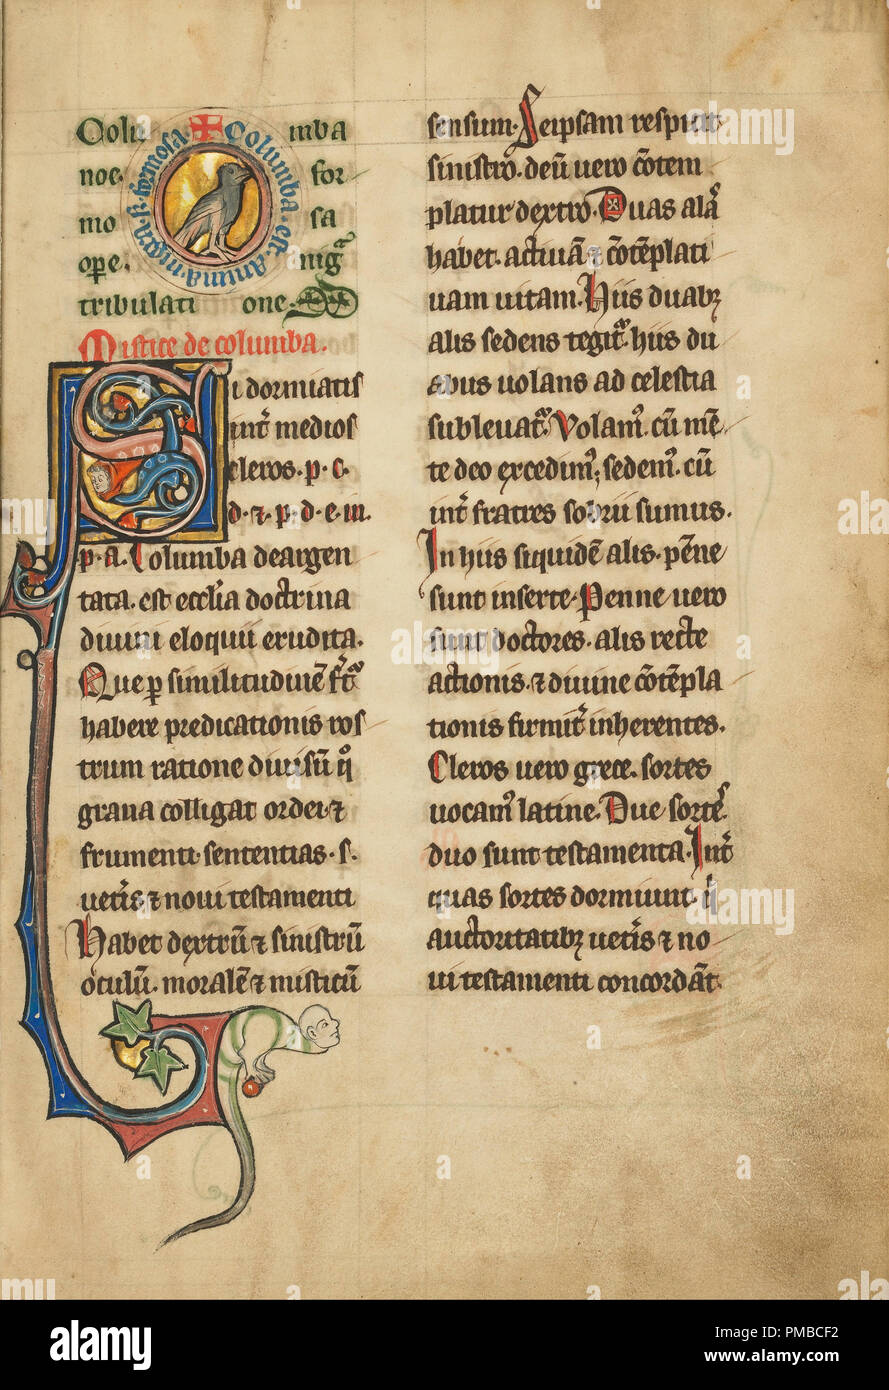 Colu mba
noe. for
mo sa
ope. nigᷓ
tribulati one.
Columba est anima nigra s; formosa
Mistice de columba.
Si dormiatis
int̃ medios
cleros. p. c.
d. ⁊. p. d. e. in.
p. a. Columba deargen
tata. est ecclĩa doctrina
diuini eloquii erudita.
Que p similitudinẽ
habere predicationis ros
trum ratione diuisũ q̊
grana colligat ordei ⁊
frumenti. sententias. s.
uetis̃ ⁊ noui testamenti
Habet dextrũ ⁊ sinistrũ
oculũ. moralẽ ⁊ misticũ
sensum. Seipsam respicit
sinistro. deũ uero cõtem
platur dextro. Duas alas̃
habet. actiuã ⁊ cõtẽplati
uam uitam. Hiis duabꝫ
alis sedens tegit᷑. hiis du
abus uolans ad celestia
subleuat᷑. Volam᷒. cũ mẽ
te deo excedim᷒; sedem᷒. cũ
int̃ fratres sobrii sumus.
In hiis siquidẽ alis. pẽne
sunt inserte. Penne uero
sunt doctores. alis recte
actionis. ⁊ diuine cõtẽpla
tionis firmit̃ inherentes.
Cleros uero grece. sortes
uocam᷒ latine. Due sortes̃
duo sunt testamenta. Int̃
quas sortes dormiunt. q̃
auctoritatibꝫ uetis̃ ⁊ no
ui testamenti concordãt.
alamy
Image ID: PMBCF2
www.alamy.com